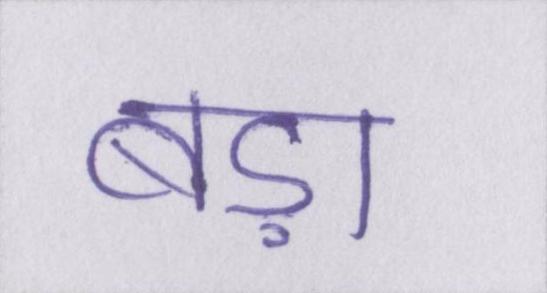 बड़ा